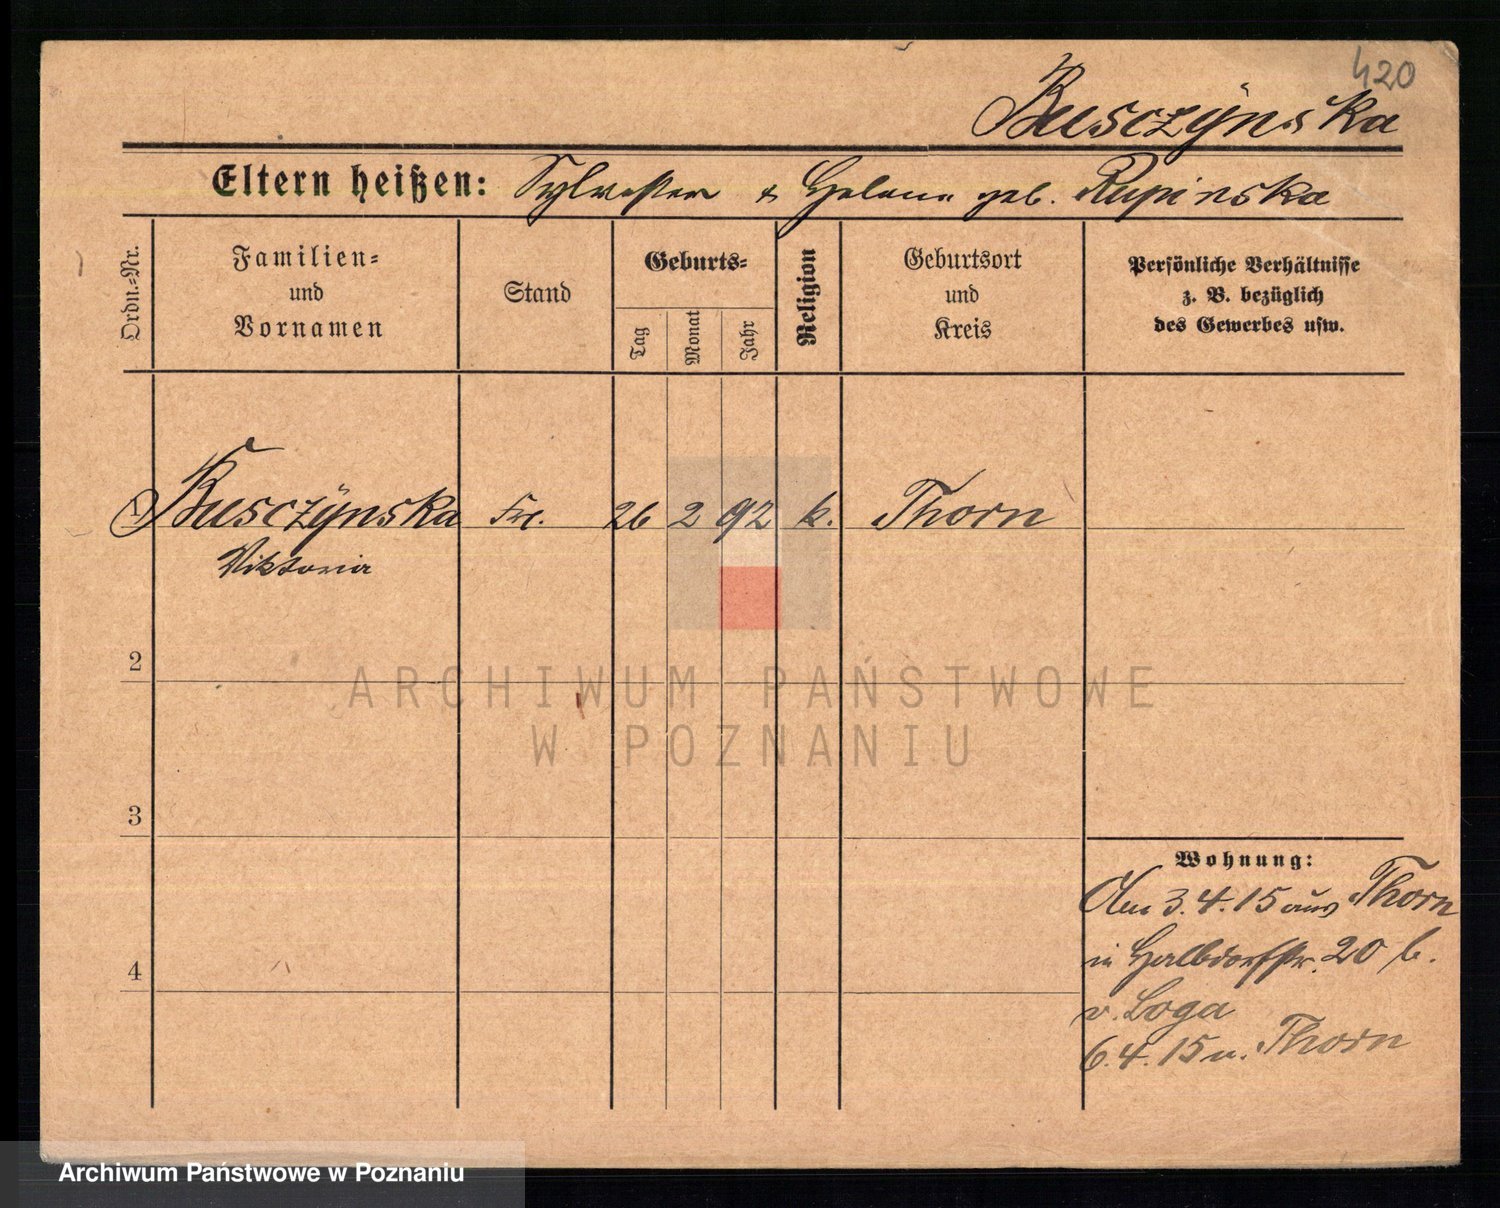 420
Rusczÿnska
Eltern heißen: Sylvester & Helene geb. Rupinska
Ordn.=Nr.
Familien=
und
Vornamen
Stand
Geburts=
Tag
Monat
Jahr
Religion
Geburtsort
und
Kreis
Persönliche Verhältnisse
z. B. bezüglich
des Gewerbes usw.
1 Rusczÿnska Frl. 26 2 92 k. Thorn
Viktoria
2
3
4
Wohnung:
Am 3.4.15 aus Thorn
in Halbdorfstr. 20 b.
v. Loga
6.4.15 n. Thorn
ARCHIWUM PAŃSTWOWE
W POZNANIU
Archiwum Państwowe w Poznaniu